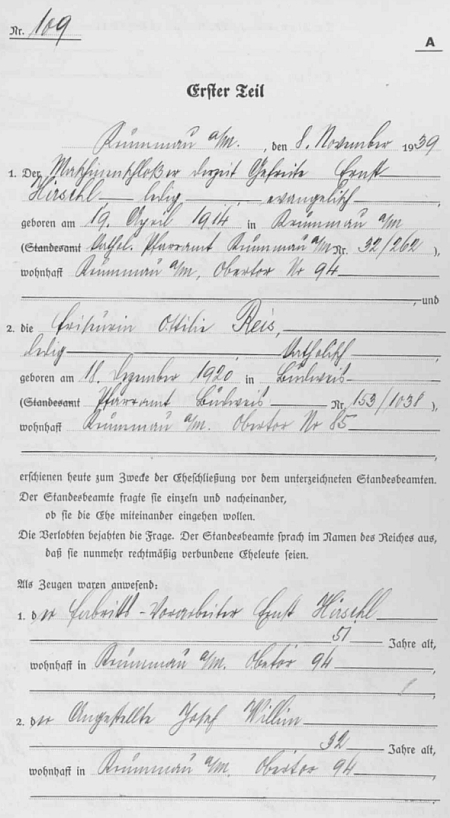 Nr. 109
A
Erster Teil
Krummau a/M. , den 8. November 1939
1. Der Maschinenschloßer derzeit Gefreite Ernst
Hirschl ledig, evangelisch
geboren am 19. April 1914 in Krummau a/M
(Standesamt Kathol. Pfarramt Krummau a/M Nr. 32/262 ),
wohnhaft Krummau a/M, Obertor Nr 94
, und
2. die Friseurin Ottilie Reis,
ledig katholisch
geboren am 18. Dezember 1920 in Budweis
(Standesamt Pfarramt Budweis Nr. 153/1031 ),
wohnhaft Krummau a/M. Obertor Nr 85
,
erschienen heute zum Zwecke der Eheschließung vor dem unterzeichneten Standesbeamten.
Der Standesbeamte fragte sie einzeln und nacheinander,
ob sie die Ehe miteinander eingehen wollen.
Die Verlobten bejahten die Frage. Der Standesbeamte sprach im Namen des Reiches aus,
daß sie nunmehr rechtmäßig verbundene Eheleute seien.
Als Zeugen waren anwesend:
1. der Fabriks-Vorarbeiter Ernst Hirschl
51 Jahre alt,
wohnhaft in Krummau a/M. Obetor 94
,
2. der Angestellte Josef
32 Jahre alt,
wohnhaft in Krummau a/M. Obertor 94
,